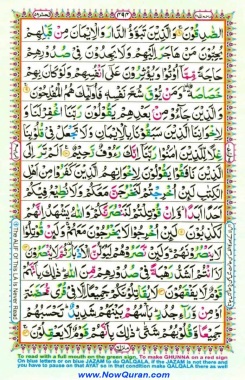 الصّٰدِقُوْنَ وَالَّذِيْنَ تَبَوَّؤُ الدَّارَ وَالْاِيْمَانَ مِنْ قَبْلِهِمْ
يُحِبُّوْنَ مَنْ هَاجَرَ اِلَيْهِمْ وَلَا يَجِدُوْنَ فِيْ صُدُوْرِهِمْ
حَاجَةً مِّمَّآ اُوْتُوْا وَيُؤْثِرُوْنَ عَلٰٓى اَنْفُسِهِمْ وَلَوْ كَانَ بِهِمْ
خَصَاصَةٌ وَمَنْ يُّوْقَ شُحَّ نَفْسِهٖ فَاُولٰٓئِكَ هُمُ الْمُفْلِحُوْنَ
وَالَّذِيْنَ جَآءُوْ مِنْ بَعْدِهِمْ يَقُوْلُوْنَ رَبَّنَا اغْفِرْ لَنَا
وَلِاِخْوَانِنَا الَّذِيْنَ سَبَقُوْنَا بِالْاِيْمَانِ وَلَا تَجْعَلْ فِيْ قُلُوْبِنَا
غِلًّا لِّلَّذِيْنَ اٰمَنُوْا رَبَّنَآ اِنَّكَ رَءُوْفٌ رَّحِيْمٌ اَلَمْ تَرَ اِلَى
الَّذِيْنَ نَافَقُوْا يَقُوْلُوْنَ لِاِخْوَانِهِمُ الَّذِيْنَ كَفَرُوْا مِنْ اَهْلِ
الْكِتٰبِ لَئِنْ اُخْرِجْتُمْ لَنَخْرُجَنَّ مَعَكُمْ وَلَا نُطِيْعُ فِيْكُمْ
اَحَدًا اَبَدًا وَّاِنْ قُوْتِلْتُمْ لَنَنْصُرَنَّكُمْ وَاللّٰهُ يَشْهَدُ اِنَّهُمْ
لَكٰذِبُوْنَ لَئِنْ اُخْرِجُوْا لَا يَخْرُجُوْنَ مَعَهُمْ وَلَئِنْ قُوْتِلُوْا
لَا يَنْصُرُوْنَهُمْ وَلَئِنْ نَّصَرُوْهُمْ لَيُوَلُّنَّ الْاَدْبَارَ ثُمَّ لَا يُنْصَرُوْنَ
لَاَنْتُمْ اَشَدُّ رَهْبَةً فِيْ صُدُوْرِهِمْ مِّنَ اللّٰهِ ذٰلِكَ بِاَنَّهُمْ
قَوْمٌ لَّا يَفْقَهُوْنَ لَا يُقَاتِلُوْنَكُمْ جَمِيْعًا اِلَّا فِيْ قُرًى مُّحَصَّنَةٍ
اَوْ مِنْ وَّرَآءِ جُدُرٍ بَاْسُهُمْ بَيْنَهُمْ شَدِيْدٌ تَحْسَبُهُمْ
جَمِيْعًا وَّقُلُوْبُهُمْ شَتّٰى ذٰلِكَ بِاَنَّهُمْ قَوْمٌ لَّا يَعْقِلُوْنَ
To read with a full mouth on the green sign, To make GHUNNA on a red sign
On blue letters or on blue JAZAM to do QALQALA, if the JAZAM is not there and
you have to pause on that AYAT so in that condition make QALQALA there as well
www.NowQuran.com